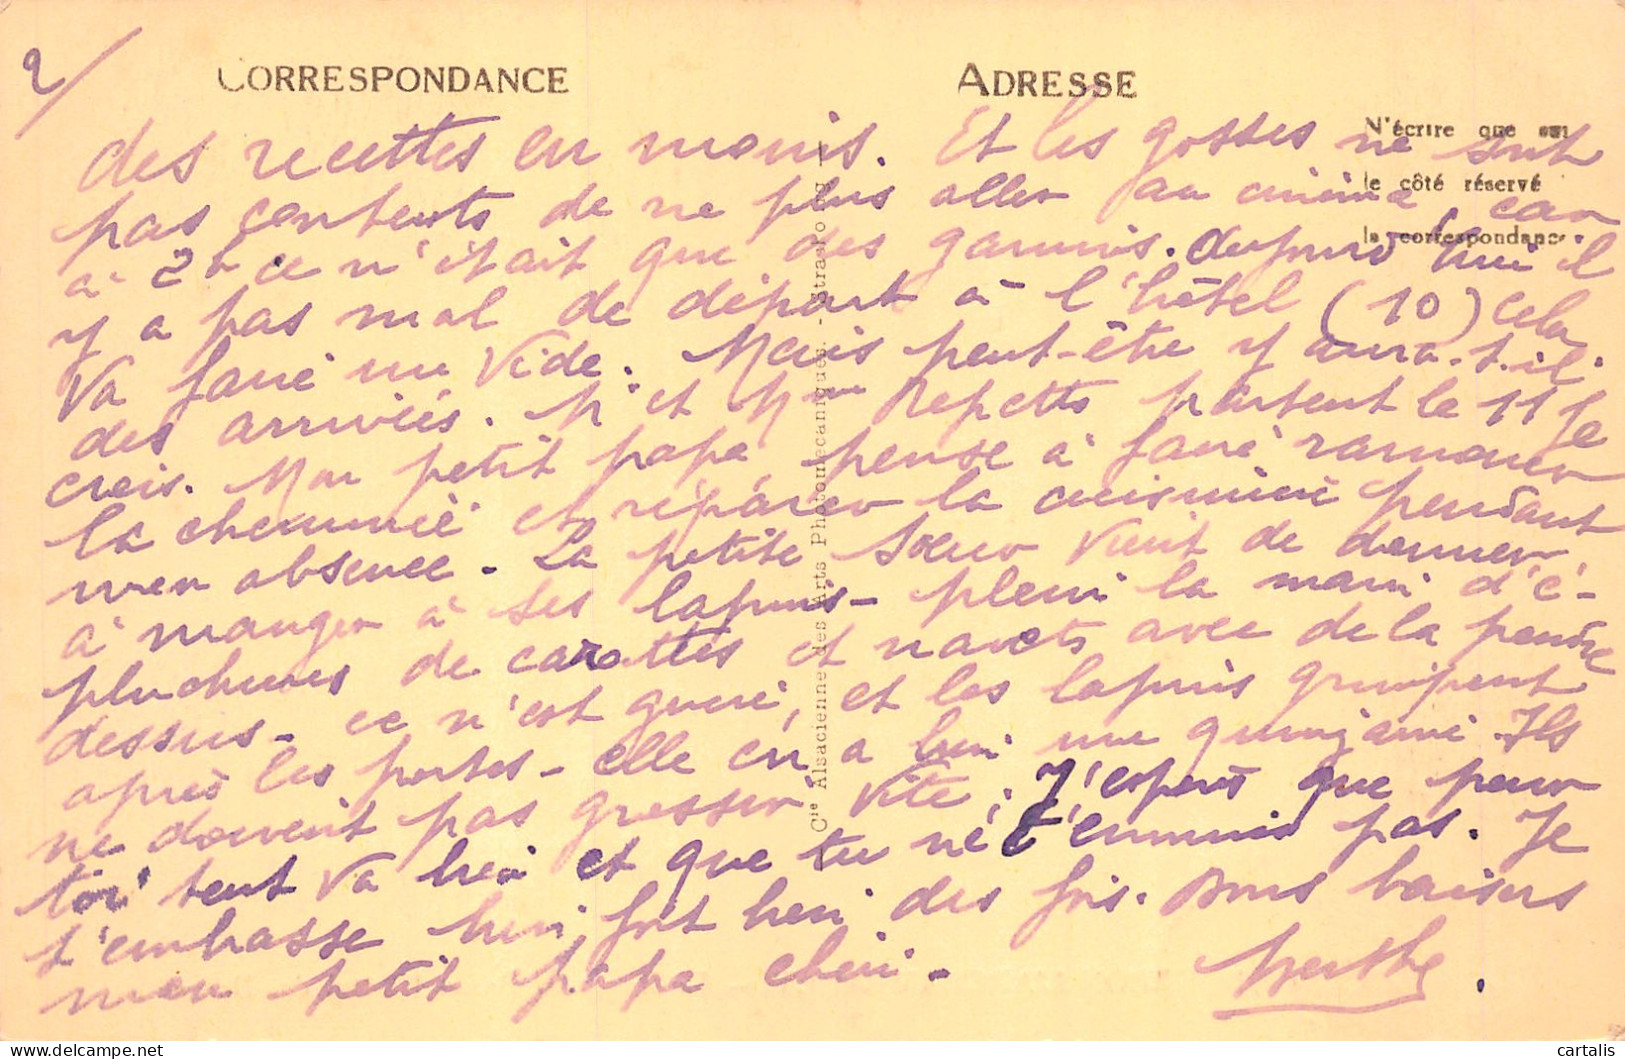 2/
CORRESPONDANCE
ADRESSE
N'écrire que sur
le côté réservé
la correspondance.
des recettes en moins. Et les gosses ne sont
pas contents de ne plus aller au cinéma, car
à 2h ce n'était que des gamins. Aujourd'hui il
y a pas mal de départ à l'hôtel (10) Cela
va faire un vide. Mais peut-être y aura-t-il
des arrivées. Mr et Mme Repetto partent le 11 je
crois. Mon petit papa, pense à faire ramoner
la cheminée et réparer la cuisinière pendant
mon absence. La petite soeur vient de donner
à manger à ses lapins - plein la main d'é-
pluchures de carottes et navets avec de la poudre
dessus - ce n'est guère, et les lapins grimpent
après les portes - elle en a bien une quinzaine. Ils
ne doivent pas grossir vite. J'espère que pour
toi tout va bien et que tu ne t'ennuies pas. Je
t'embrasse bien fort bien des fois. Bons baisers
mon petit papa chéri -
Berthe.
Cie Alsacienne des Arts Photomécaniques. - Strasbourg
delcampe.net
cartalis